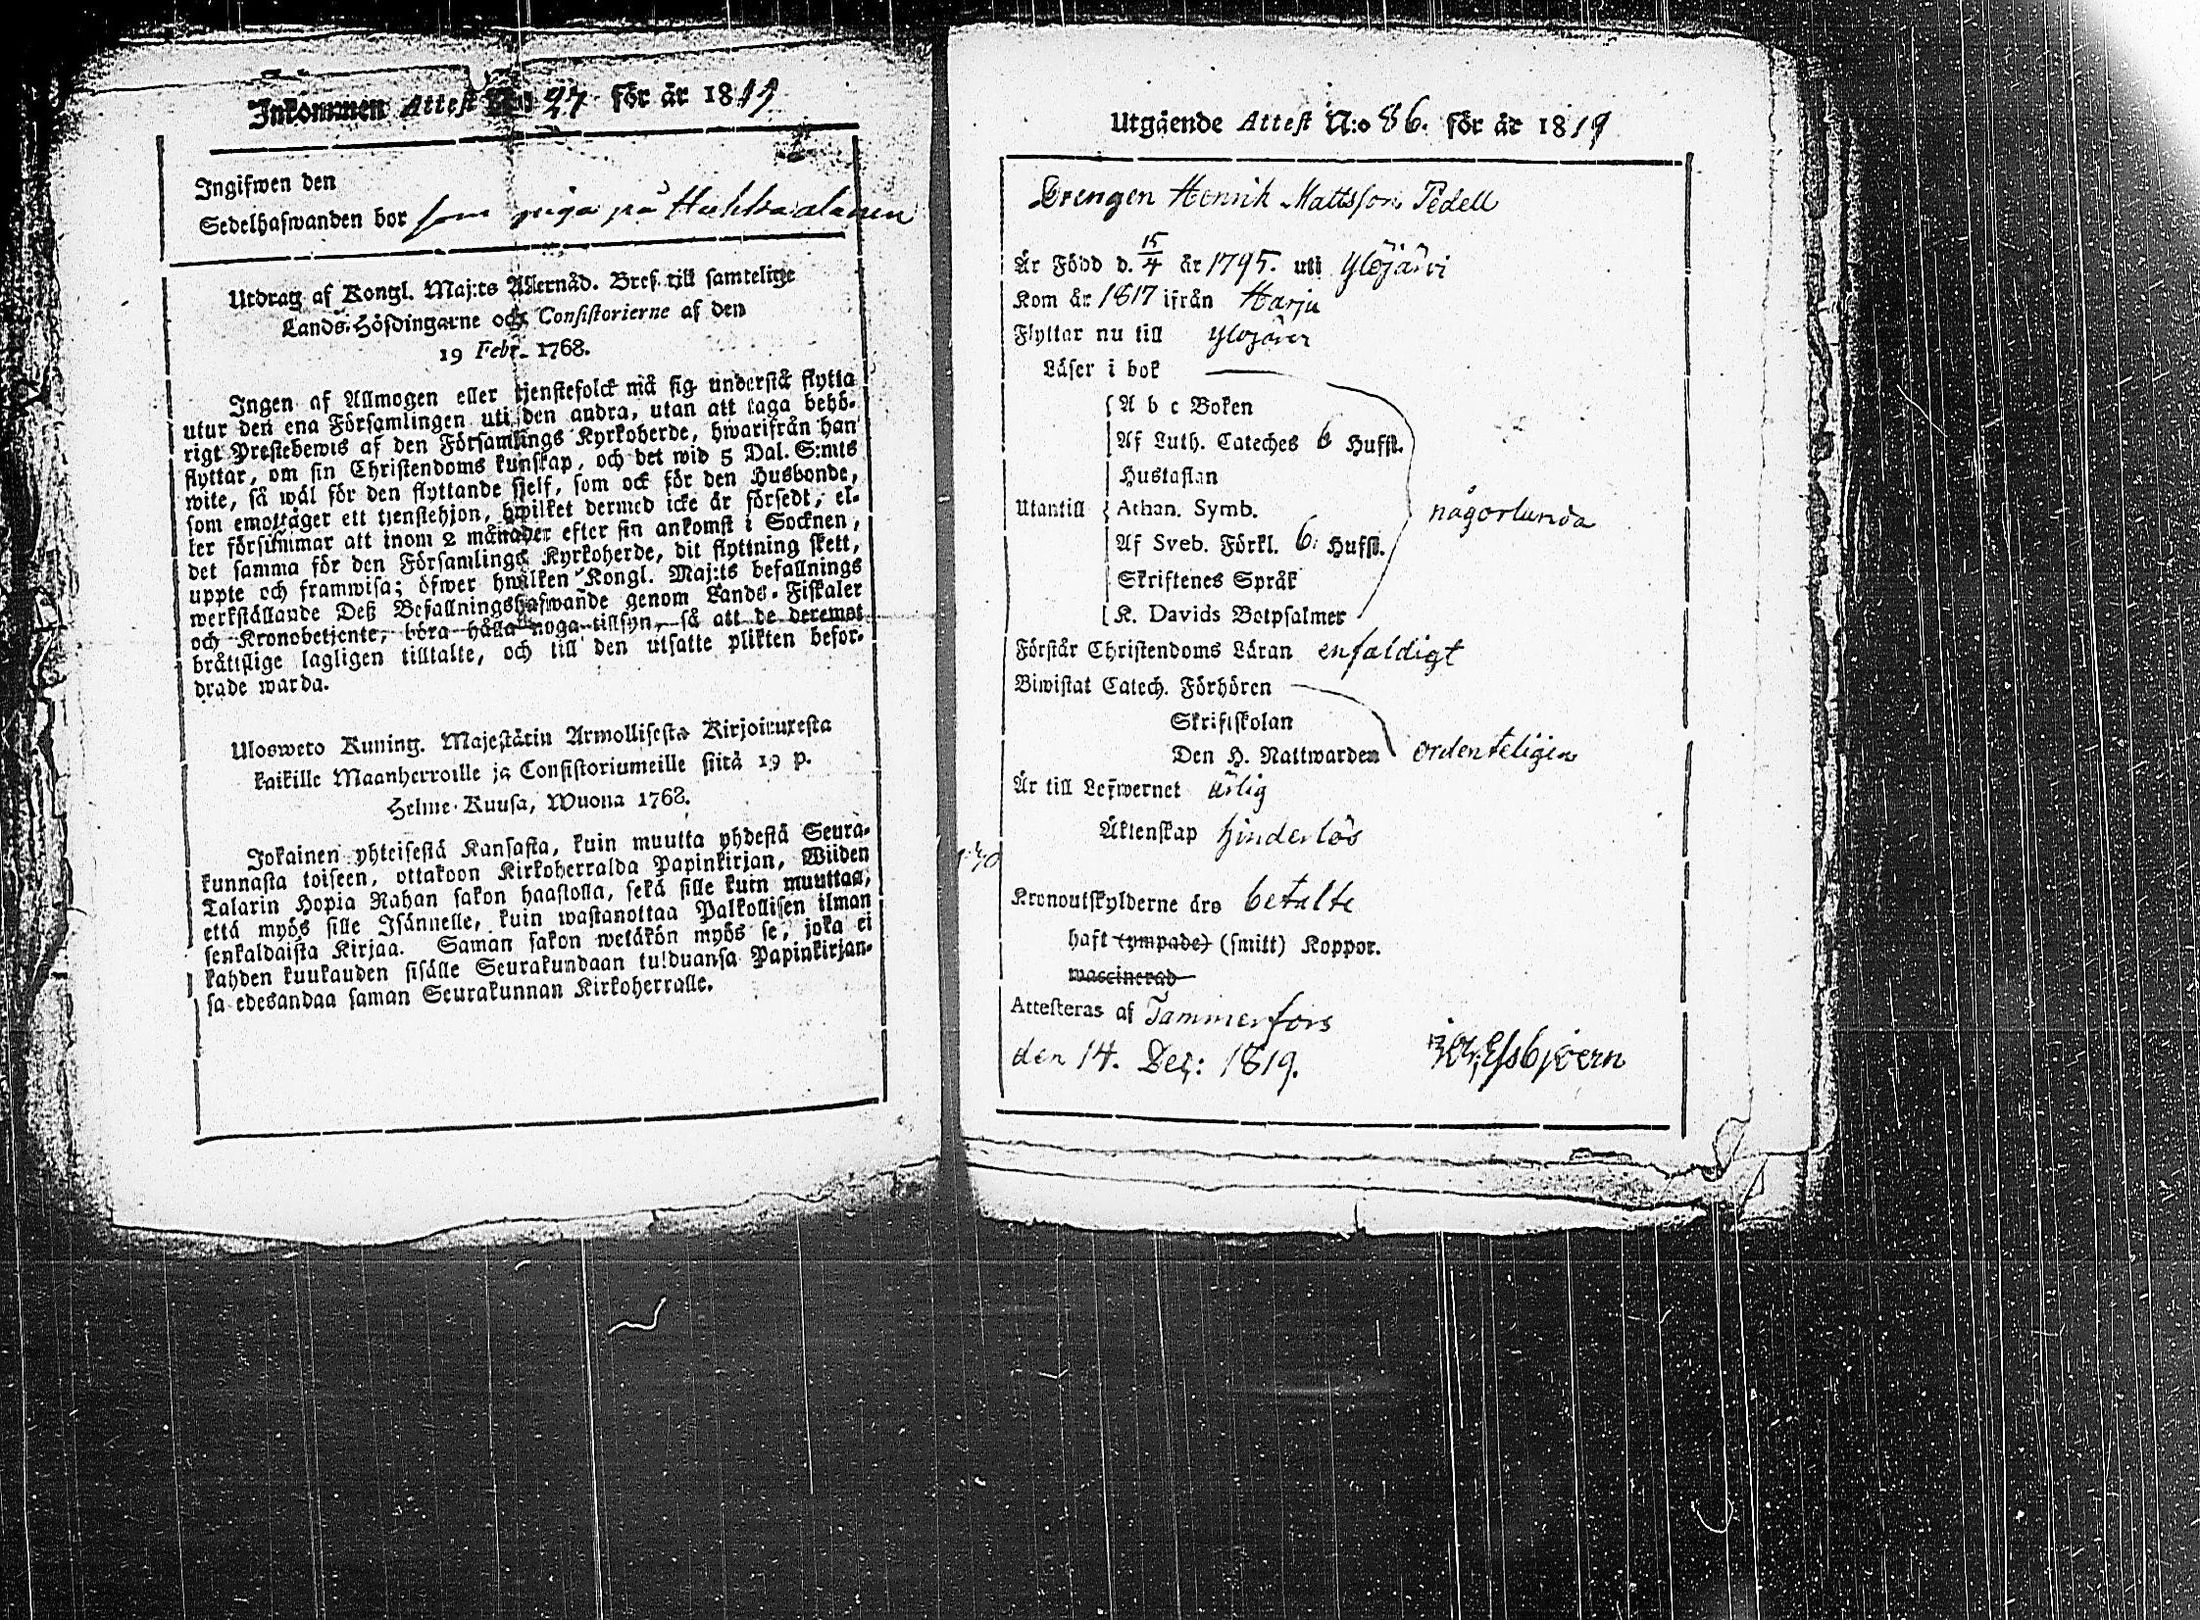 Inkommen Attest N:o 27 för år 1819
Ingifwen den
Sedelhafwanden bor som piga på
Utdrag af Kongl. Maj:ts Allernåd. Bref till samtelige
Lands-Höfdingarne och Consistorierne af den
19 Febr. 1768.
Ingen af Allmogen eller tjenstefolck må sig understå flytta
utur den ena Församlingen uti den andra, utan att taga behö-
rigt Prestebewis af den Församlings Kyrkoherde, hwarifrån han
flyttar, om sin Christendoms kunskap, och det wid 5 Dal. S:mts
wite, så wäl för den flyttande sjelf, som ock för den Husbonde,
som emottager ett tjenstehjon, hwilket dermed icke är försedt, el-
ler försummar att inom 2 månader efter sin ankomst i Socknen,
det samma för den Församlings Kyrkoherde, dit flyttning skett,
uppte och framwisa; öfwer hwilken Kongl. Maj:ts befallnings
werkställande Deß Befallningshafwande genom Lands-Fiskaler
och Kronobetjente, böra hålla noga tillsyn, så att de deremot
bråttslige lagligen tilltalte, och till den utsatte plikten befor-
drade warda.
Ulosweto Kuning. Majestätin Armollisesta Kirjoituxesta
kaikille Maanherroille ja Consistoriumeille siitä 19 p.
Helme-Kuusa, Wuona 1768.
Jokainen yhteisestä Kansasta, kuin muutta yhdestä Seura-
kunnasta toiseen, ottakoon Kirkoherralda Papinkirjan, Wiiden
Talarin Hopia Rahan sakon haastolla, sekä sille kuin muuttaa,
että myös sille Isännelle, kuin wastanottaa Palkollisen ilman
senkaldaista Kirjaa. Saman sakon wetäkön myös se, joka ei
kahden kuukauden sisälle Seurakundaan tulduansa Papinkirjan-
sa edesandaa saman Seurakunnan Kirkoherralle.
Utgående Attest N:o 86. för år 1819
Drengen Henrik Mattsson Pedell
Är Född d. 15/4 år 1795. uti Ylöjärvi
Kom år 1817 ifrån Harju
Flyttar nu till Ylöjärvi
Läser i bok
A b c Boken
Af Luth. Cateches 6 Hufst.
Hustaflan
Utantill Athan. Symb. någorlunda
Af Sveb. Förkl. 6. Hufst.
Skriftenes Språk
K. Davids Botpsalmer
Förstår Christendoms Läran enfaldigt
Biwistat Catech. Förhören
Skriftskolan
Den H. Nattwarden ordenteligen
Är till Lefwernet ärlig
Äktenskap hinderlös
Kronoutskylderne äro betalte
haft (ympade) (smitt) Koppor.
waccinerad
Attesteras af Tammerfors
den 14. Dec: 1819. Essbjoern